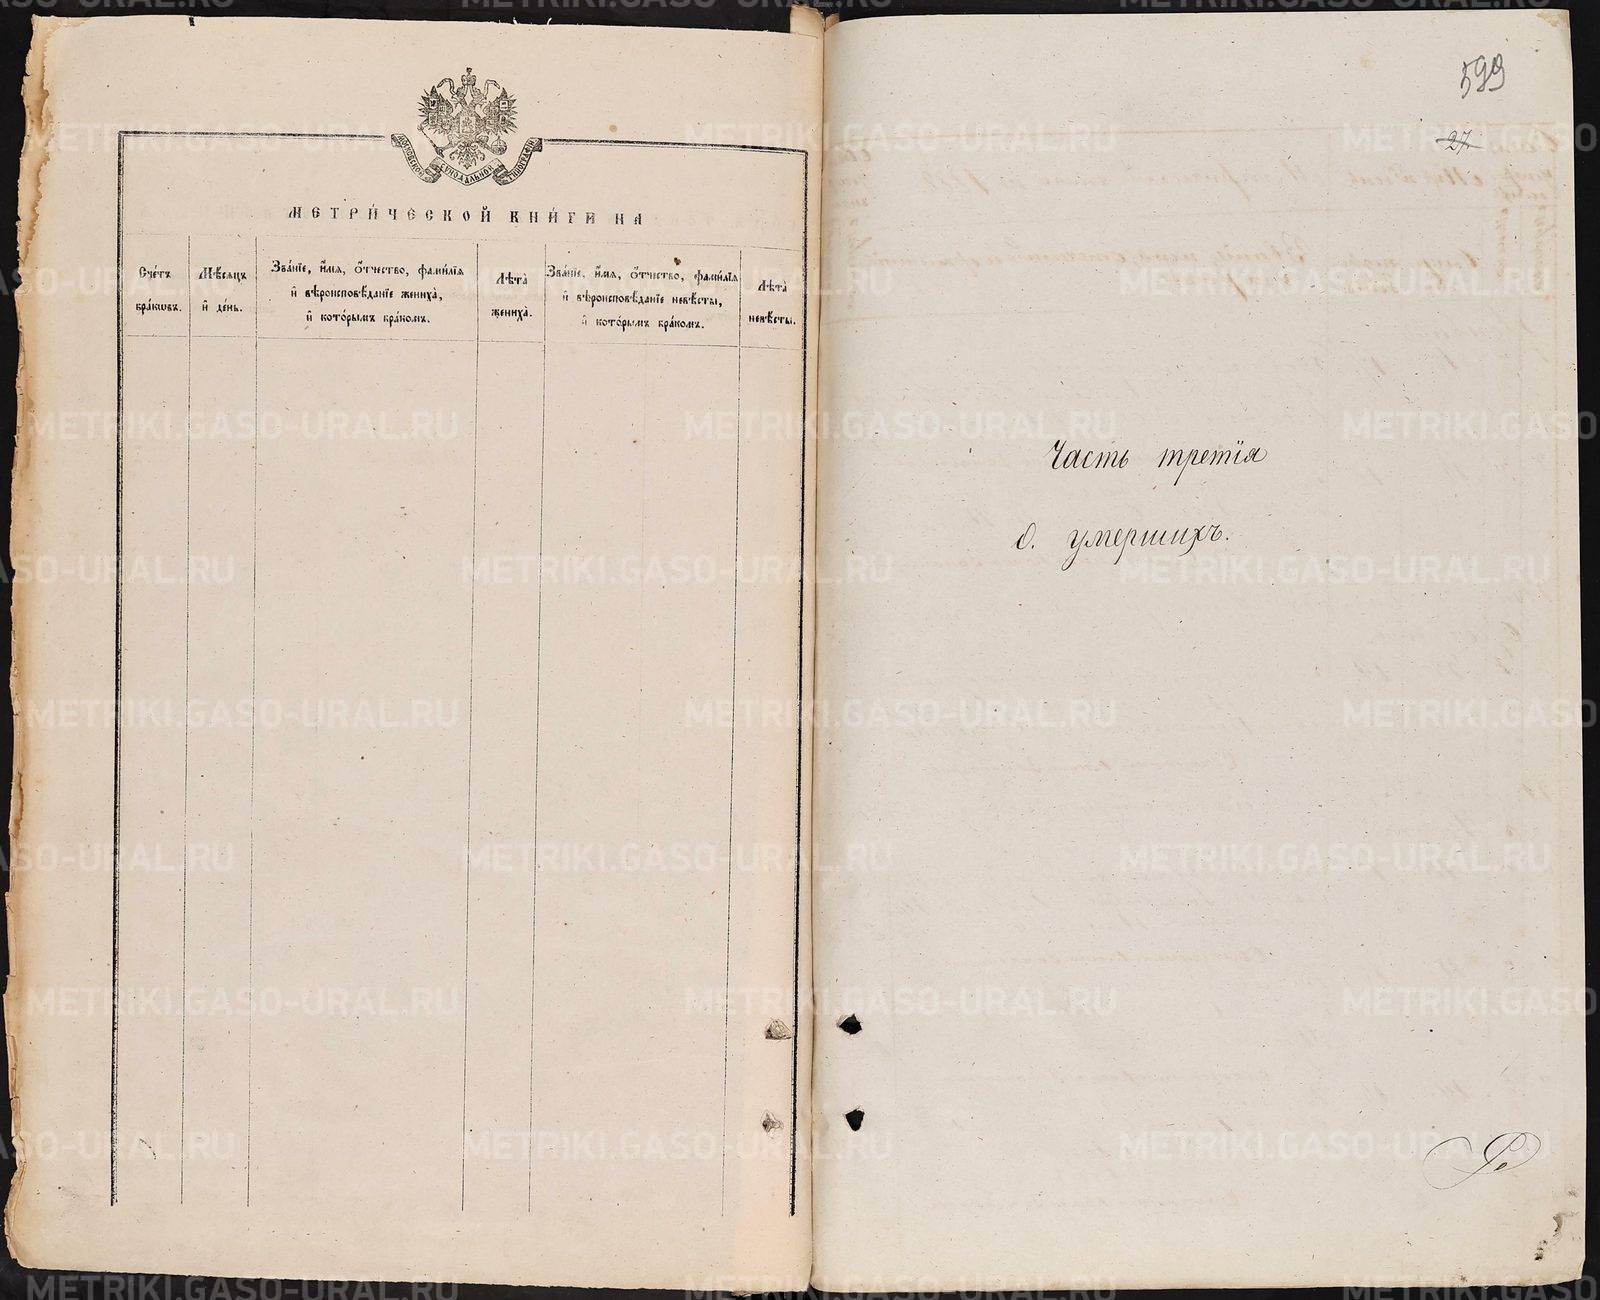 МОСКОВСКОЙ СѴНОДАЛЬНОЙ ТИПОГРАФІИ
МЕТРИ́ЧЕСКОЙ КНИ́ГИ НА
Сче́тъ
бра́кѡвъ.
Мѣ́сяцъ
и҆ де́нь.
Зва́нїе, и҆́мѧ, ѻ҆́тчество, фами́лїѧ
и҆ вѣроисповѣ́данїе жениха̀,
и҆ кото́рымъ бра́комъ.
Лѣ́та
жениха̀.
Зва́нїе, и҆́мѧ, ѻ҆́тчество, фами́лїѧ
и҆ вѣроисповѣ́данїе невѣ́сты,
и҆ кото́рымъ бра́комъ.
Лѣ́та
невѣ́сты.
599
27.
Часть третія
о. умершихъ.
METRIKI.GASO-URAL.RU